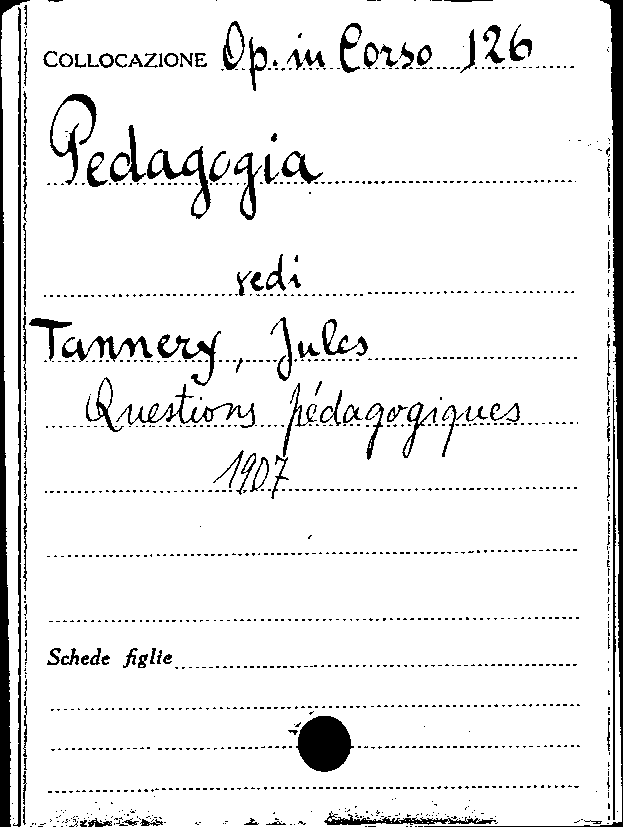 COLLOCAZIONE Op. in Corso 126
Pedagogia
vedi
Tannery, Jules
Questions pédagogiques
1907
Schede figlie